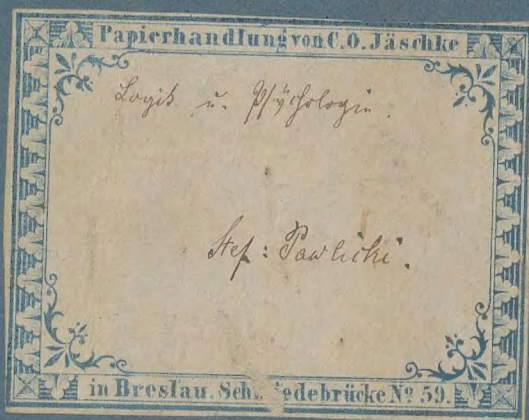 Papierhandlung von C. O. Jäschke
Logik u. Psychologie.
Stef: Pawlicki.
in Breslau, Sch iedebrücke No 59.